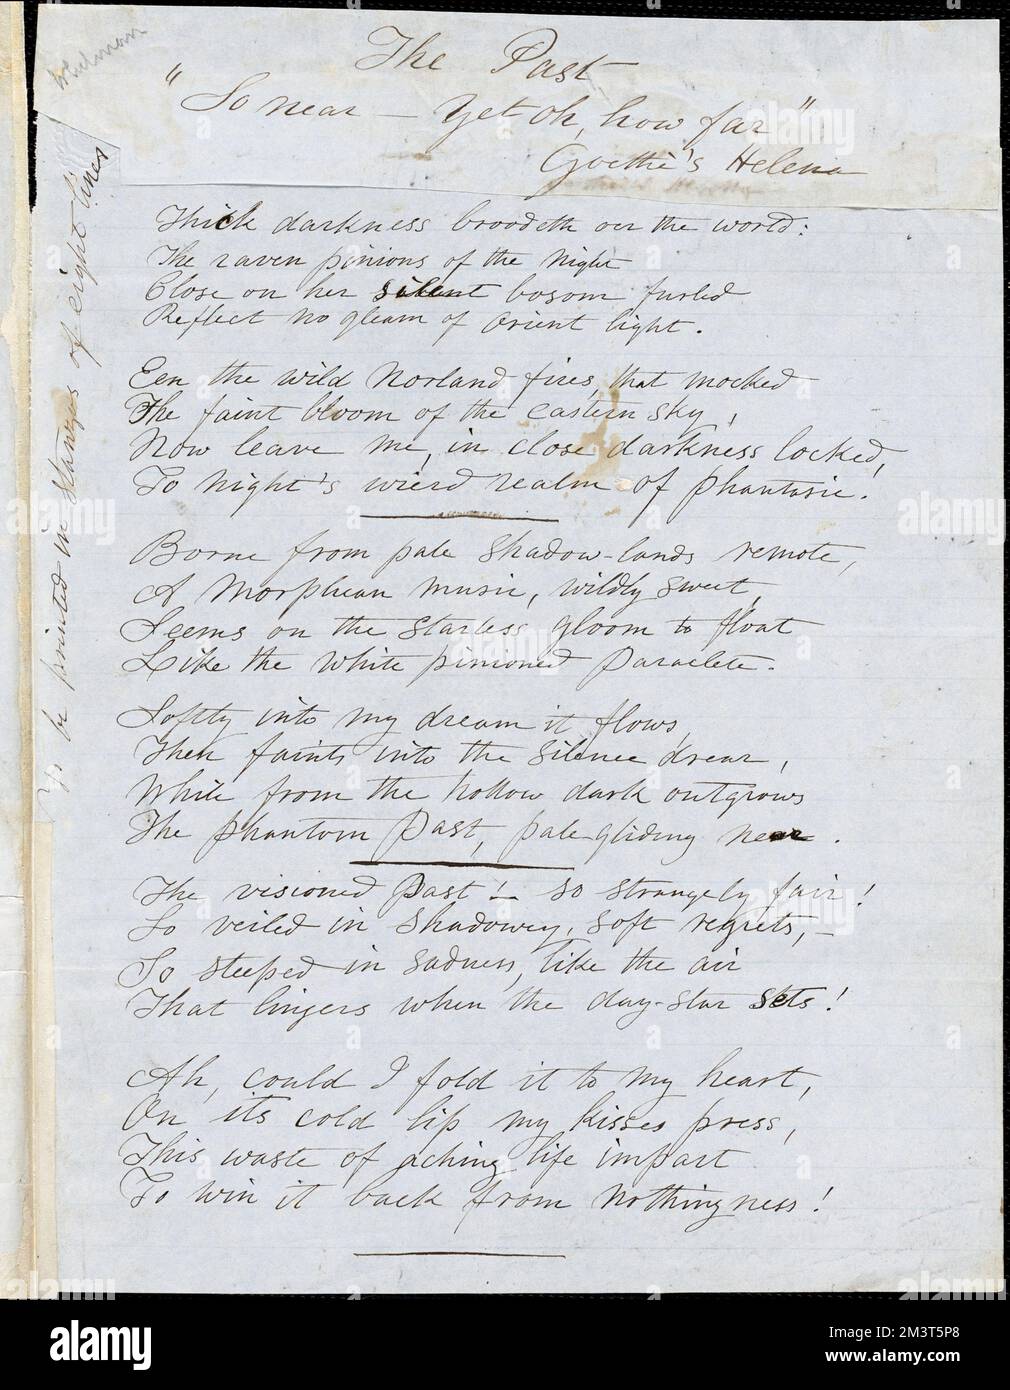 Whitman
The Past
"So near — yet oh, how far"
Goethe's Helena
To be printed in stanzas of eight lines
Thick darkness broodeth oer the world:
The raven pinions of the Night
Close on her silent bosom furled
Reflect no gleam of orient light.
Een the wild Norland fires, that mocked
The faint bloom of the eastern sky,
Now leave me, in close darkness locked,
To Night's wierd realm of phantasie.
Borne from pale shadow-lands remote,
A Morphean music, wildly sweet,
Seems on the starless gloom to float
Like the white pinioned Paraclete.
Softly into my dream it flows,
Then faints into the silence drear,
While from the hollow dark outgrows
The phantom Past, pale gliding near.
The visioned Past! — so strangely fair!
So veiled in shadowy, soft regrets, —
So steeped in sadness, like the air
That lingers when the day-star sets!
Ah, could I fold it to my heart,
On its cold lip my kisses press,
This waste of aching life impart
To win it back from nothingness!
alamy
Image ID: 2M3T5P8
www.alamy.com